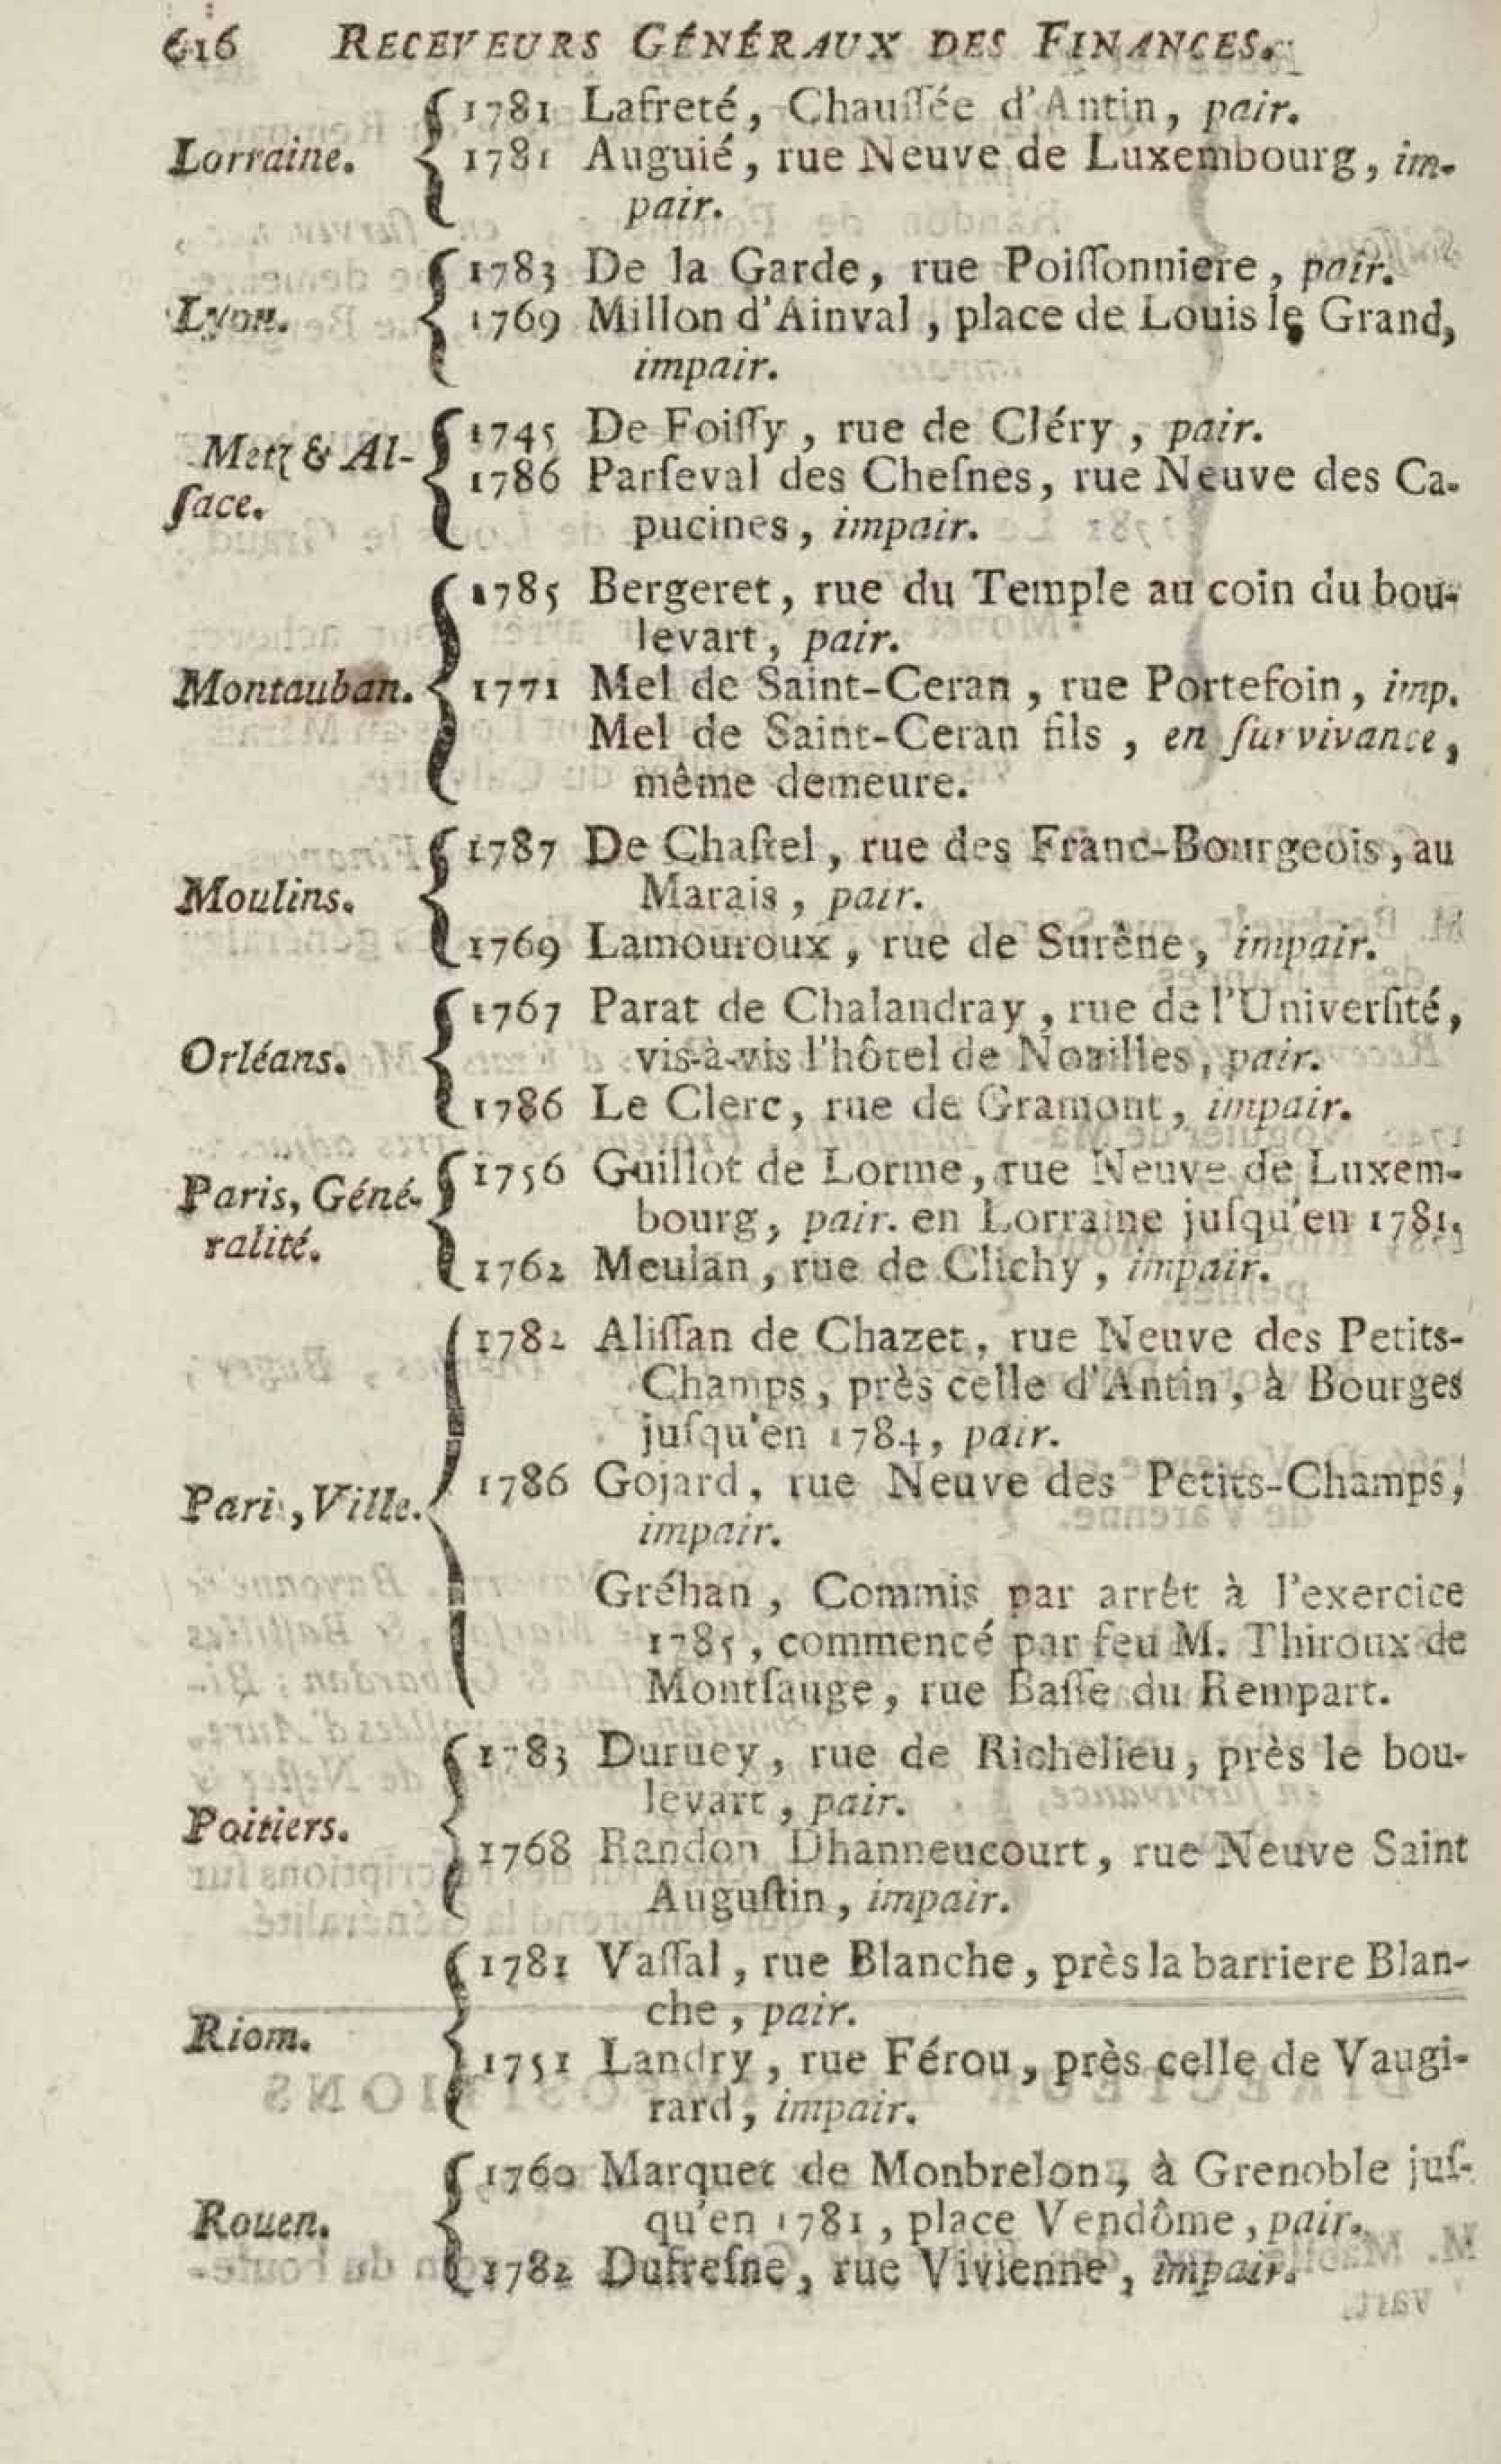 616 RECEVEURS GÉNÉRAUX DES FINANCES.
1781 Lafreté, Chauſſée d'Antin, pair.
Lorraine. 1781 Auguié, rue Neuve de Luxembourg, im-
pair.
1783 De la Garde, rue Poiſſonniere, pair.
Lyon. 1769 Millon d'Ainval, place de Louis le Grand,
impair.
1745 De Foiſſy, rue de Cléry, pair.
Metz & Al- 1786 Parſeval des Cheſnes, rue Neuve des Ca-
ſace. pucines, impair.
1785 Bergeret, rue du Temple au coin du bou-
levart, pair.
Montauban. 1771 Mel de Saint-Ceran, rue Portefoin, imp.
Mel de Saint-Ceran fils, en ſurvivance,
même demeure.
1787 De Chaſtel, rue des Franc-Bourgeois, au
Moulins. Marais, pair.
1769 Lamouroux, rue de Surène, impair.
1767 Parat de Chalandray, rue de l'Univerſité,
Orléans. vis-à-vis l'hôtel de Noailles, pair.
1786 Le Clerc, rue de Gramont, impair.
1756 Guillot de Lorme, rue Neuve de Luxem-
Paris, Géné- bourg, pair. en Lorraine juſqu'en 1781.
ralité. 1762 Meulan, rue de Clichy, impair.
1782 Aliſſan de Chazet, rue Neuve des Petits-
Champs, près celle d'Antin, à Bourges
juſqu'en 1784, pair.
Paris, Ville. 1786 Gojard, rue Neuve des Petits-Champs,
impair.
Gréhan, Commis par arrêt à l'exercice
1785, commencé par feu M. Thiroux de
Montſauge, rue Baſſe du Rempart.
1783 Duruey, rue de Richelieu, près le bou-
levart, pair.
Poitiers. 1768 Randon Dhanneucourt, rue Neuve Saint
Auguſtin, impair.
1781 Vaſſal, rue Blanche, près la barriere Blan-
che, pair.
Riom. 1751 Landry, rue Férou, près celle de Vaugi-
rard, impair.
1760 Marquet de Monbrelon, à Grenoble juſ-
Rouen. qu'en 1781, place Vendôme, pair.
1782 Dufreſne, rue Vivienne, impair.